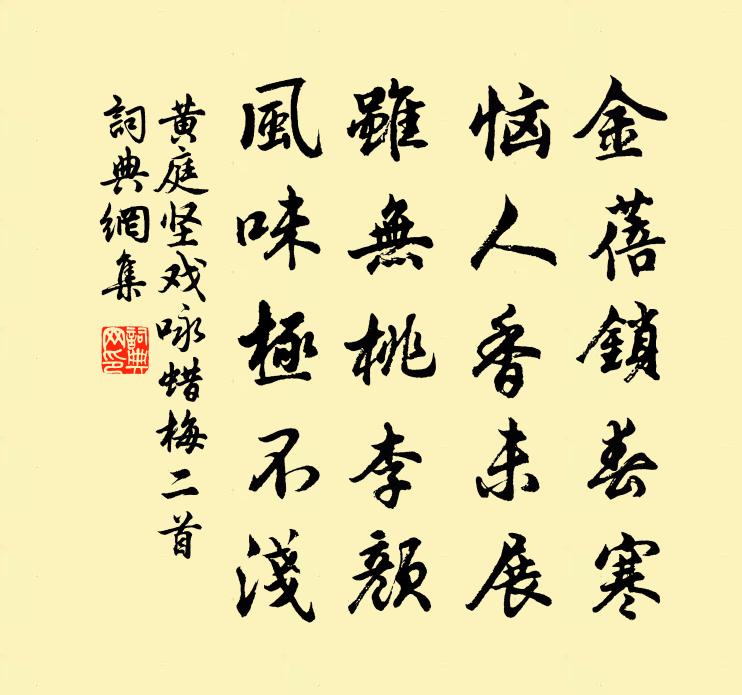 金蓓鎖春寒
恼人香未展
雖無桃李顏
風味極不淺
黄庭坚戏咏蜡梅二首
詞典網集
詞典網印